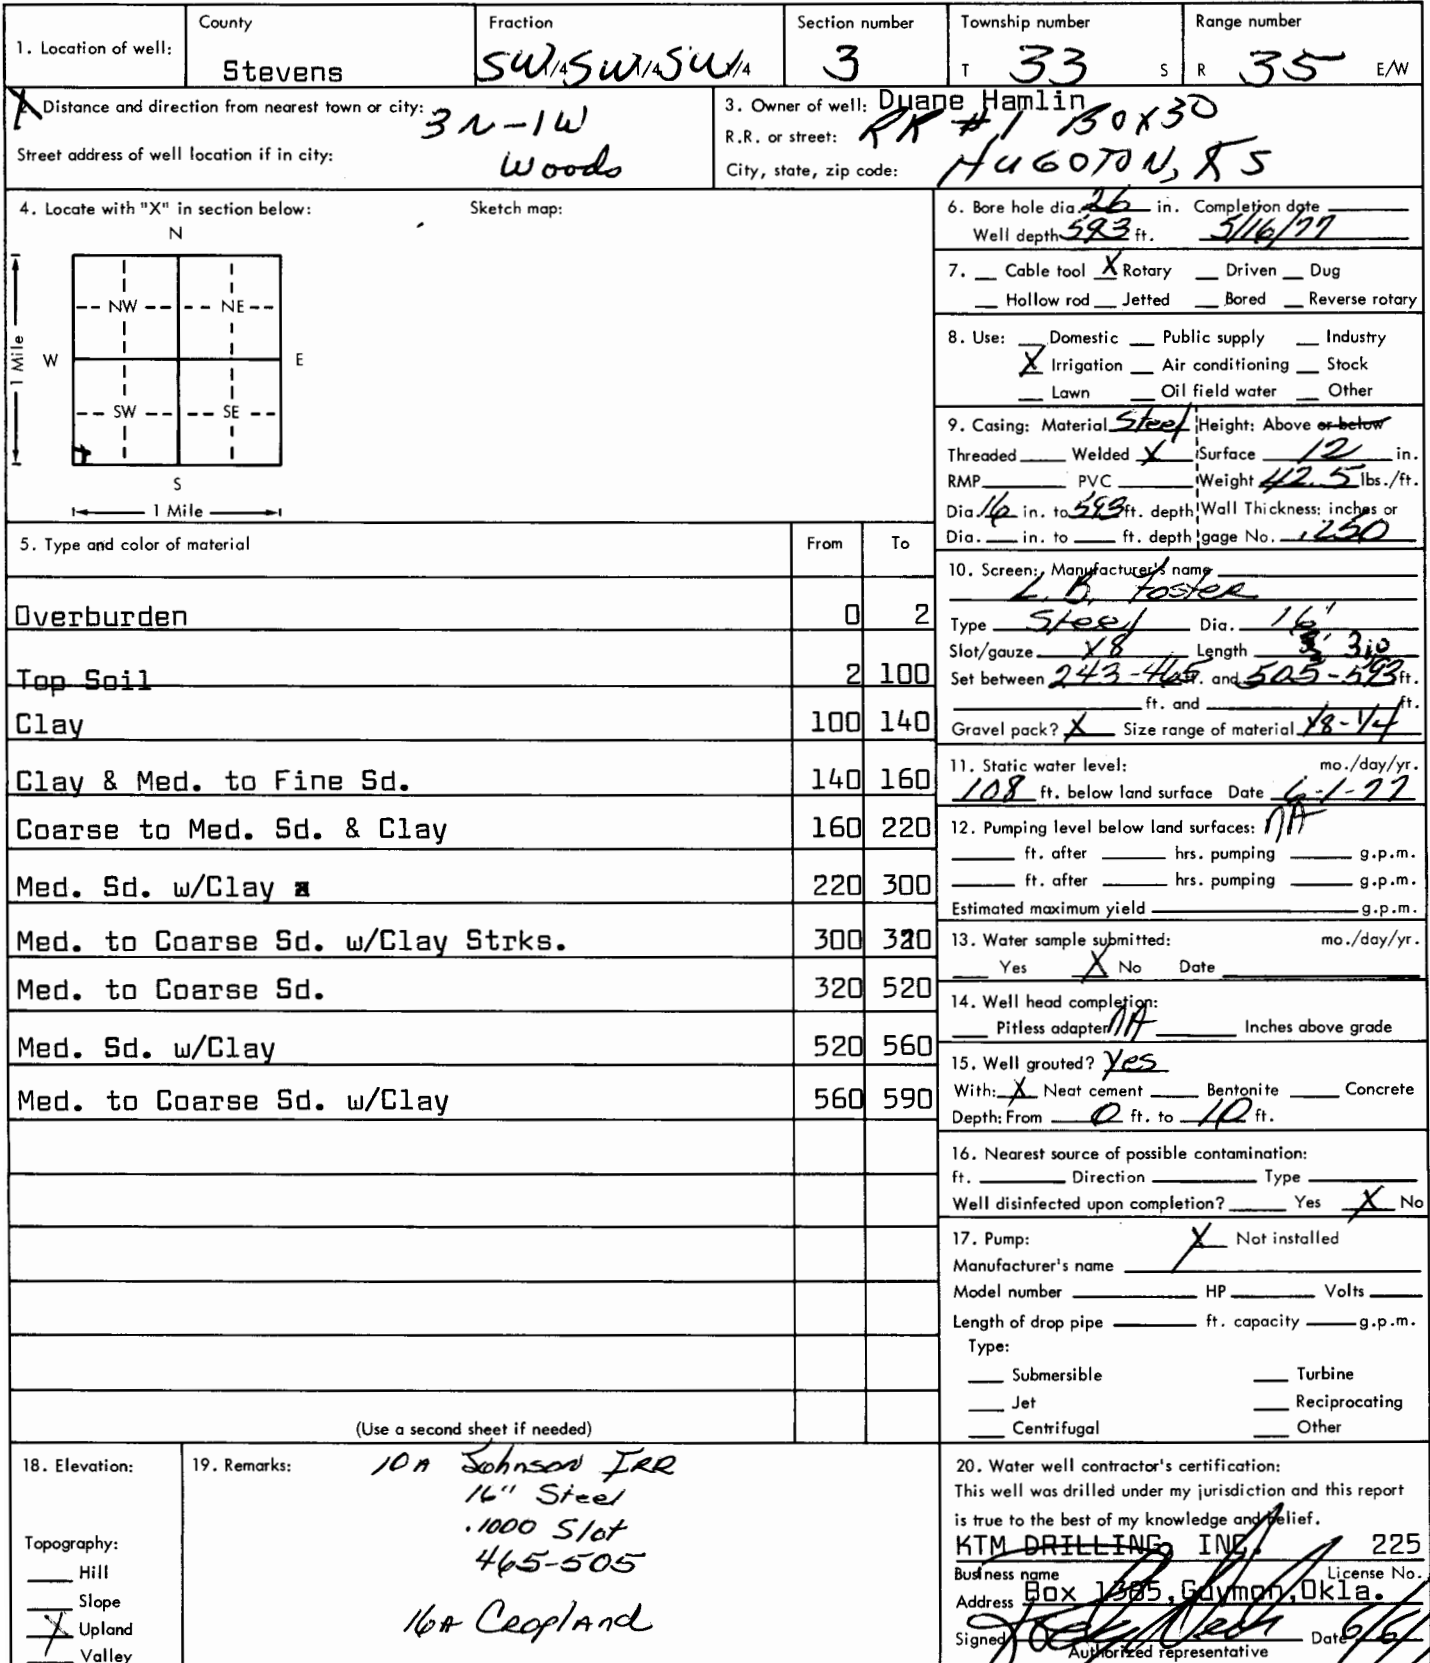 1. Location of well: County Stevens Fraction SW 1/4 SW 1/4 SW 1/4 Section number 3 Township number T 33 S Range number R 35 E/W
2. Distance and direction from nearest town or city: 3N-1W
Woods
Street address of well location if in city:
3. Owner of well: Duane Hamlin
R.R. or street: RR #1 BOX 30
City, state, zip code: HUGOTON, KS
4. Locate with "X" in section below: Sketch map:
N
NW NE
W E
1 Mile
SW SE
S
1 Mile
5. Type and color of material From To
Overburden 0 2
Top Soil 2 100
Clay 100 140
Clay & Med. to Fine Sd. 140 160
Coarse to Med. Sd. & Clay 160 220
Med. Sd. w/Clay 220 300
Med. to Coarse Sd. w/Clay Strks. 300 320
Med. to Coarse Sd. 320 520
Med. Sd. w/Clay 520 560
Med. to Coarse Sd. w/Clay 560 590
(Use a second sheet if needed)
6. Bore hole dia. 26 in. Completion date
Well depth 593 ft. 5/16/77
7. Cable tool X Rotary Driven Dug
Hollow rod Jetted Bored Reverse rotary
8. Use: Domestic Public supply Industry
X Irrigation Air conditioning Stock
Lawn Oil field water Other
9. Casing: Material Steel Height: Above or below
Threaded Welded X Surface 12 in.
RMP PVC Weight 42.5 lbs./ft.
Dia. 16 in. to 593 ft. depth Wall Thickness: inches or
Dia. in. to ft. depth gage No. .250
10. Screen: Manufacturer's name
L. B. Foster
Type Steel Dia. 16"
Slot/gauze 1/8 Length 310
Set between 243-465 ft. and 505-593 ft.
ft. and ft.
Gravel pack? X Size range of material 1/8-1/4
11. Static water level: mo./day/yr.
108 ft. below land surface Date 6-1-77
12. Pumping level below land surfaces: NA
ft. after hrs. pumping g.p.m.
ft. after hrs. pumping g.p.m.
Estimated maximum yield g.p.m.
13. Water sample submitted: mo./day/yr.
Yes X No Date
14. Well head completion:
Pitless adapter NA Inches above grade
15. Well grouted? Yes
With: X Neat cement Bentonite Concrete
Depth: From 0 ft. to 10 ft.
16. Nearest source of possible contamination:
ft. Direction Type
Well disinfected upon completion? Yes X No
17. Pump: X Not installed
Manufacturer's name
Model number HP Volts
Length of drop pipe ft. capacity g.p.m.
Type:
Submersible Turbine
Jet Reciprocating
Centrifugal Other
18. Elevation:
Topography:
Hill
Slope
X Upland
Valley
19. Remarks: 10A Johnson IRR
16" Steel
.1000 Slot
465-505
16A Cropland
20. Water well contractor's certification:
This well was drilled under my jurisdiction and this report
is true to the best of my knowledge and belief.
KTM DRILLING, INC. 225
Business name License No.
Address Box 1385, Guymon, Okla.
Signed Date
Authorized representative